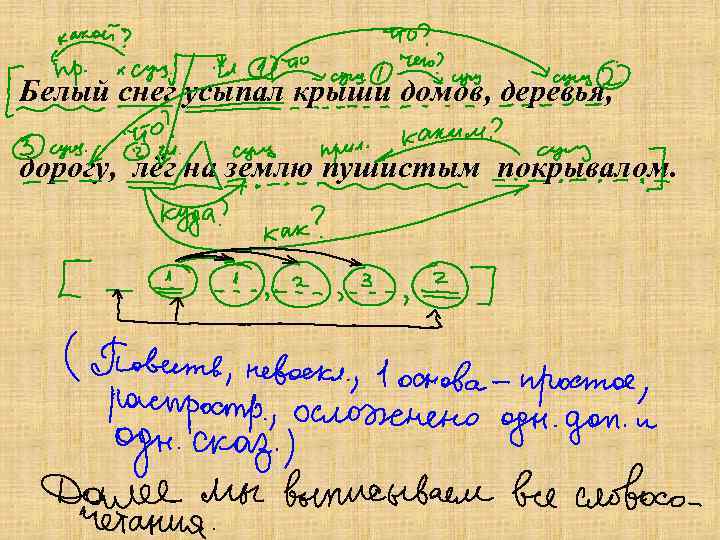 какой? что?
пр. × сущ гл 1 что сущ 1 чего? сущ сущ 2
[Белый снег усыпал крыши домов, деревья,
3 сущ. что? 2 гл. сущ прил. каким? сущ
дорогу, лёг на землю пушистым покрывалом.]
куда? как?
[ _ 1 1, 2, 3, 2 ]
(Повеств, невоскл., 1 основа – простое,
распростр., осложнено одн. доп. и
одн. сказ.)
Далее мы выписываем все словосо-
четания.